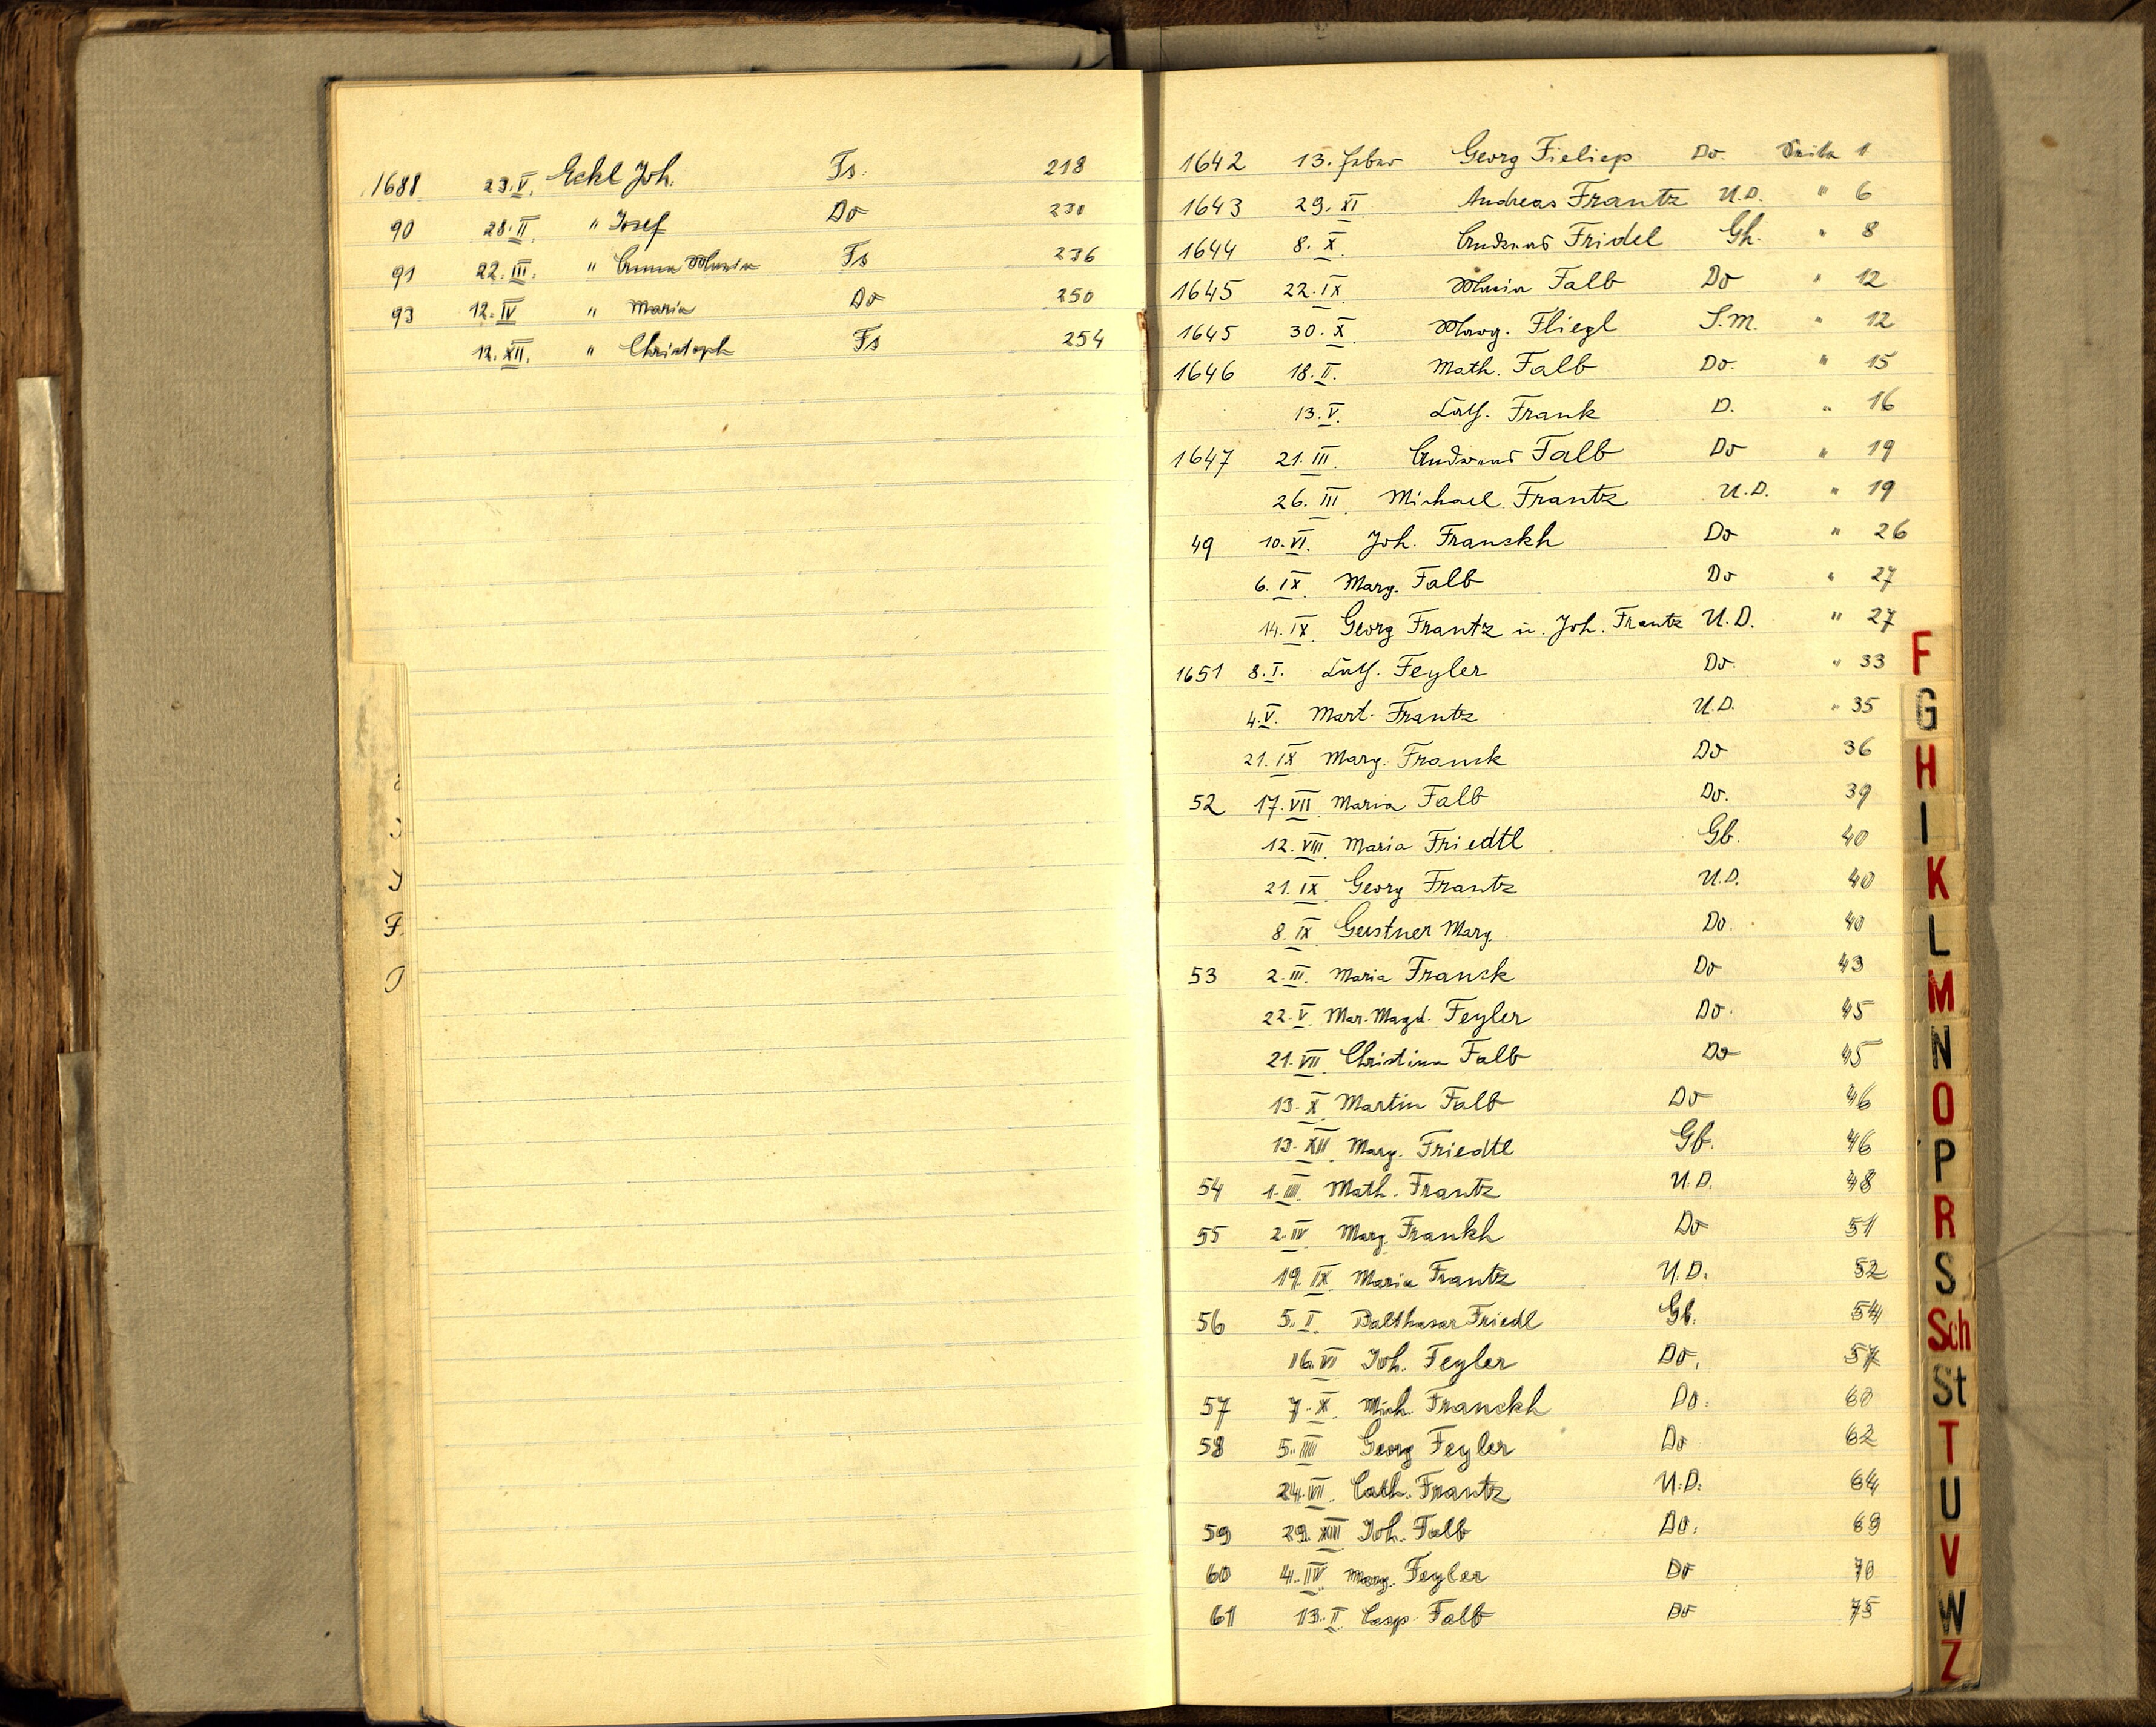 1688 23.V. Eckl Joh. Fs. 218
90 28.II. " Josef Do 230
91 22.III. " Anna Maria Fs 236
93 12.IV " Maria Do 250
12.XII. " Christoph Fs 254
1642 13. Febur Georg Fieliep Do. Seite 1
1643 29.XI Andreas Frantz U.D. " 6
1644 8.X. Andreas Fridel Gh. " 8
1645 22.IX Maria Falb Do " 12
1645 30.X Marg. Fliegl S.M. " 12
1646 18.II. Math. Falb Do. " 15
13.V. Cath. Frank D. " 16
1647 21.III. Andreas Falb Do " 19
26.III Michael Frantz U.D. " 19
49 10.VI. Joh. Franckh Do " 26
6.IX Marg. Falb Do " 27
14.IX. Georg Frantz u. Joh. Frantz U.D. " 27
1651 8.I. Cath. Feyler Do. " 33
4.V. Mart. Frantz U.D. " 35
21.IX Marg. Franck Do 36
52 17.VII Maria Falb Do. 39
12.VIII Maria Friedtl Gb. 40
21.IX Georg Frantz U.D. 40
8.IX Gerstner Marg. Do. 40
53 2.III. Maria Franck Do 43
22.V Mar. Magd. Feyler Do. 45
21.VII Christina Falb Do 45
13.X Martin Falb Do 46
13.XII Marg. Friedtl Gb. 46
54 1.III. Math. Frantz U.D. 48
55 2.IV Marg. Frankh Do 51
19.IX Maria Frantz U.D. 52
56 5.I. Balthasar Friedl Gb. 54
16.VI Joh. Feyler Do. 57
57 7.X Mich. Franckh Do. 60
58 5.IIII Georg Feyler Do 62
24.VII. Cath. Frantz U.D. 64
59 29.XII Joh. Falb Do. 69
60 4.IV. Marg. Feyler Do 70
61 13.II Casp. Falb Do 75
F
G
H
I
K
L
M
N
O
P
R
S
Sch
St
T
U
V
W
Z